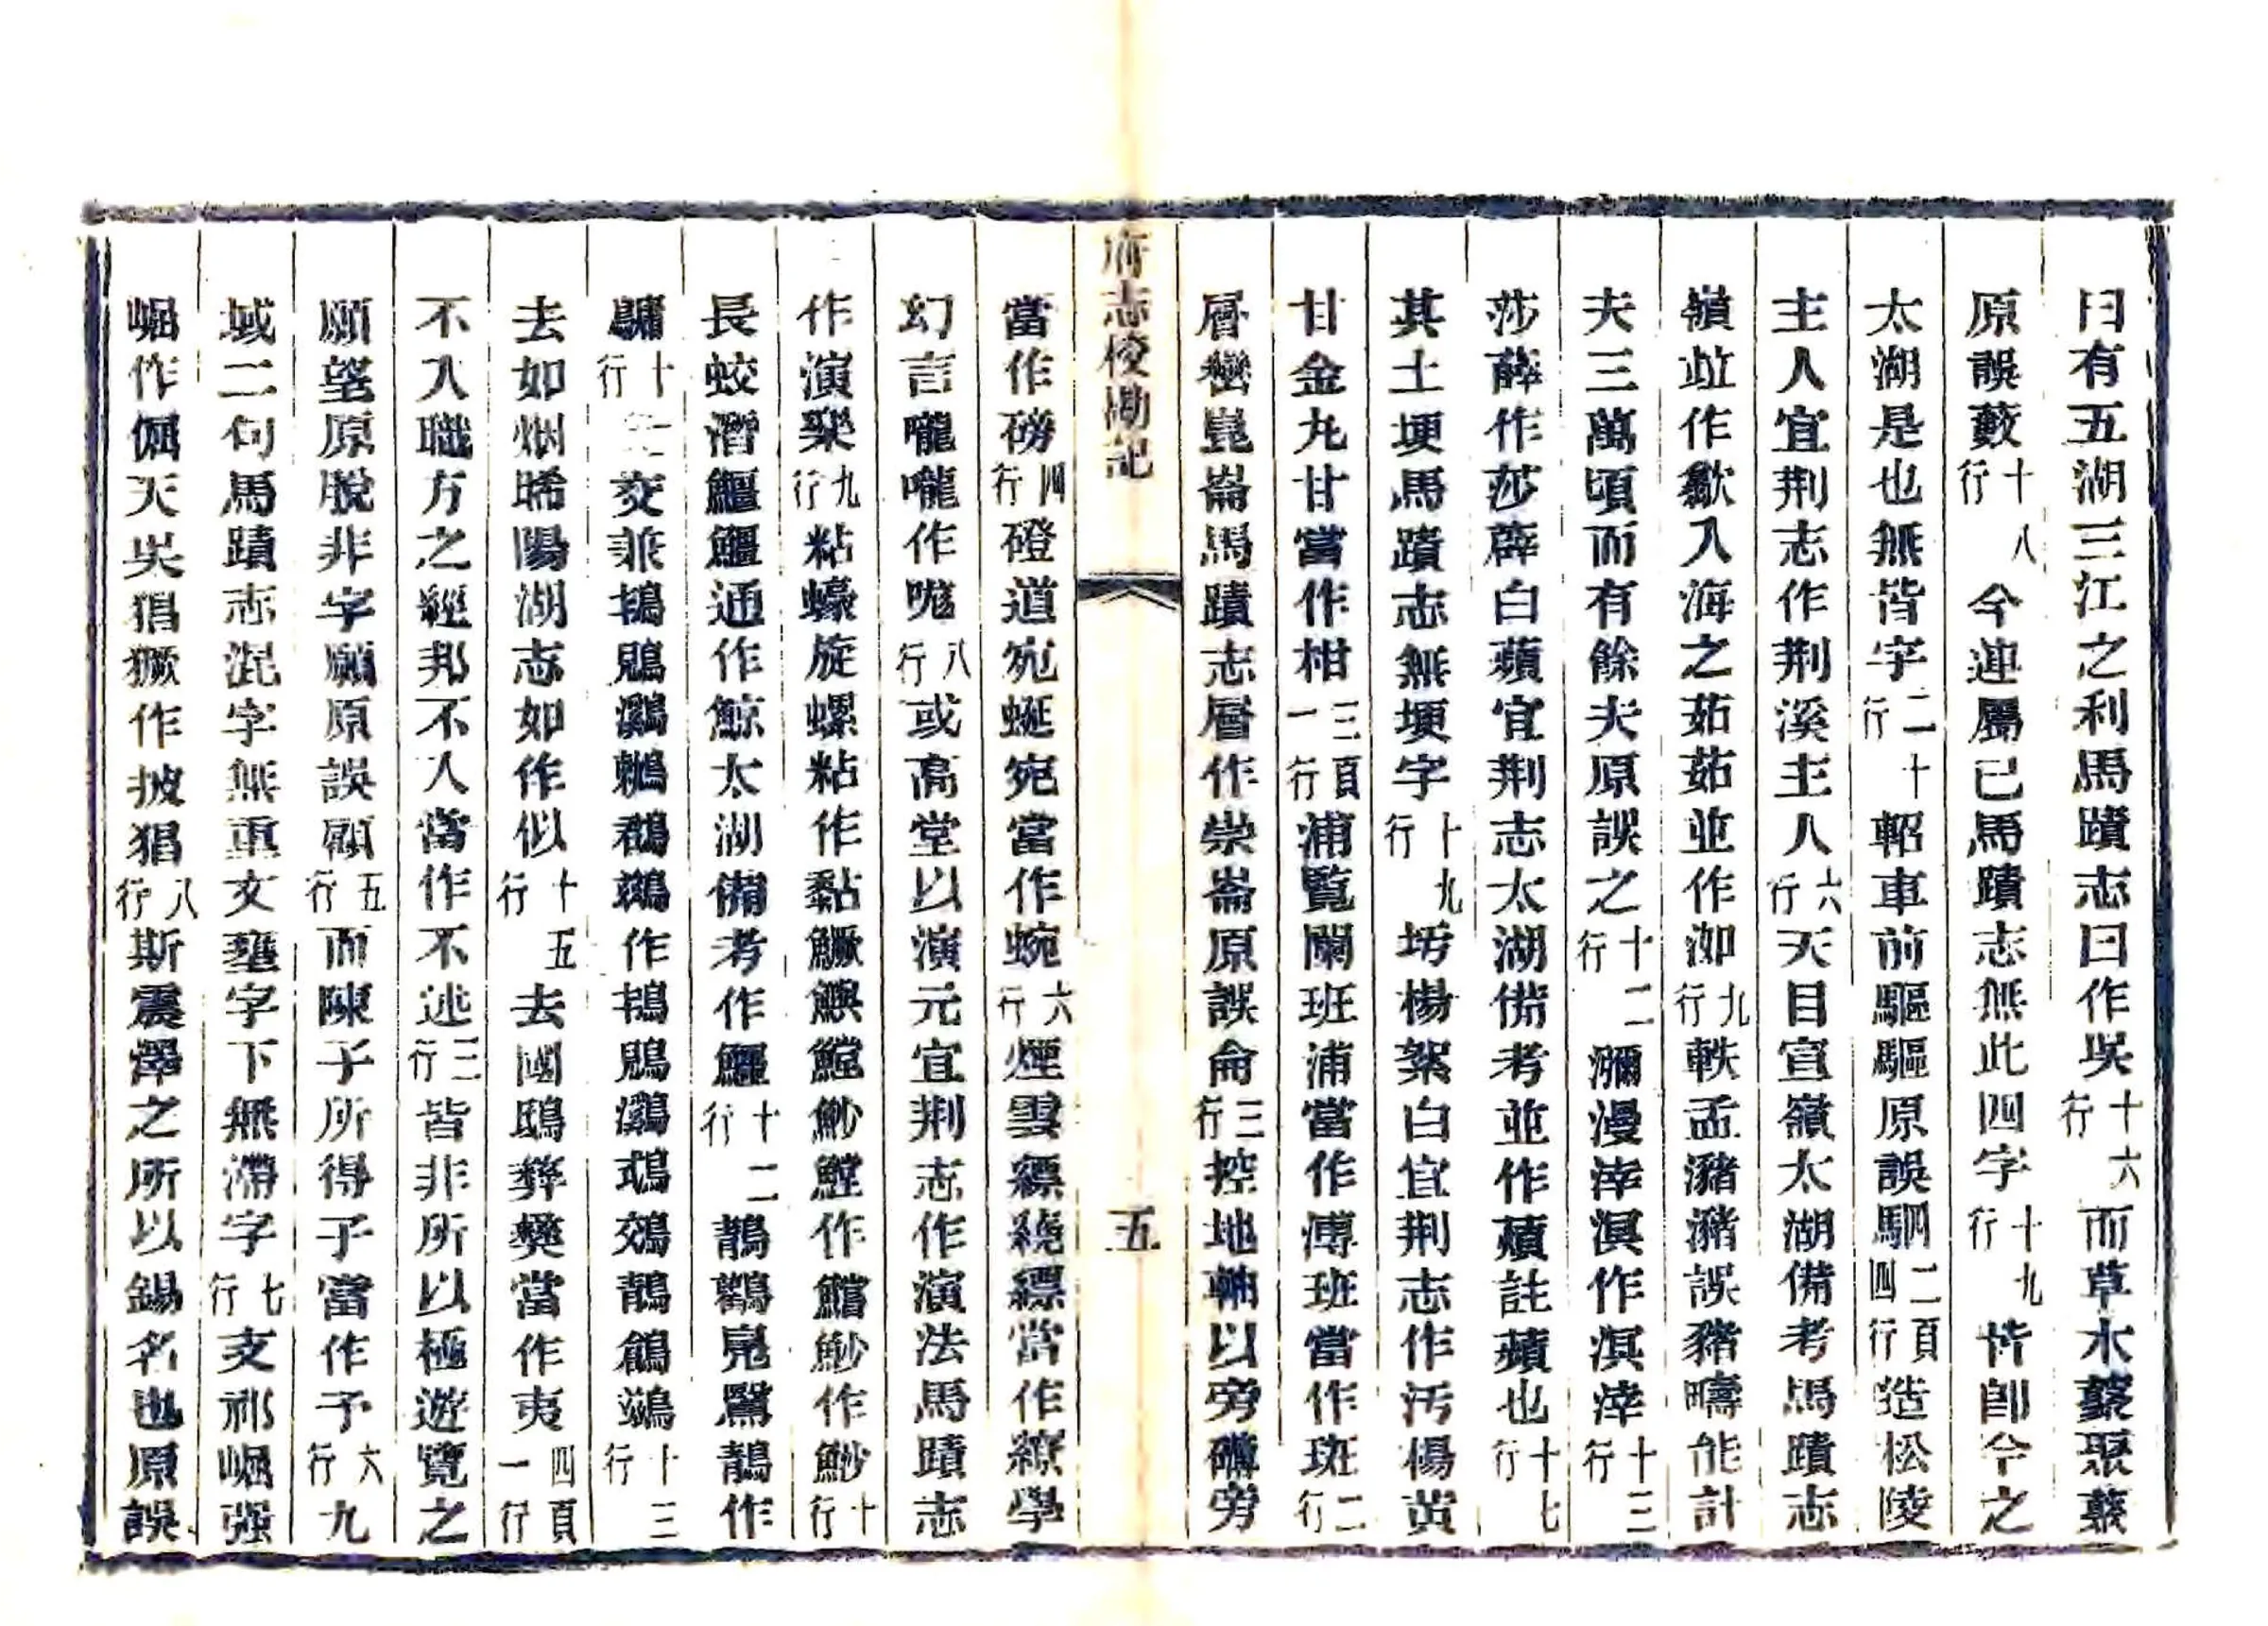 曰有五湖三江之利馬蹟志曰作吳十六行而草木藂聚藂
原誤藪十八行今迎屬已馬蹟志無此四字十九行皆卽今之
太湖是也無皆字二十行軺車前驅驅原誤駟二頁四行造松陵
主人宜荆志作荆溪主人六行天目宣嶺太湖備考馬蹟志
嶺竝作歙入海之茹茹並作洳九行軼孟瀦瀦誤豬疇能計
夫三萬頃而有餘夫原誤之十二行瀰漫涬溟作溟涬十三行
莎薜作莎薜白蘋宜荆志太湖備考並作薠註蘋也十七行
其土埂馬蹟志無埂字十九行圬楊絮白宜荆志作汚楊黃
甘金丸甘當作柑三頁一行浦覧闌班浦當作溥班當作斑二行
層巒崑崙馬蹟志層作崇崙原誤侖三行控地軸以旁礴旁
府志校勘記
五
當作磅四行磴道宛蜒宛當作蜿六行煙雲縹繞縹當作繚學
幻言嚨嚨作哤八行或高堂以演元宜荆志作演法馬蹟志
作演檗九行粘蠔旋螺粘作黏鱖鱮鏜魦鏜作鱨魦作魦十行
長蛟潛鱷鱷通作鯨太湖備考作鱷十二行鶄鸛鳧鷖鶄作
鷛十一行交兼鵠鶂鸂鷘鵡鶒作鵠鶂鸂鴟鵁鶄鶬鷀十三行
去如烟晞陽湖志如作似十五行去國鴟彝彝當作夷四頁一行
不入職方之經邦不入當作不述三行皆非所以極遊覽之
願望原脫非字願原誤顧五行而陳子所得子當作予六行九
域二句馬蹟志混字無重文壅字下無滯字七行支祁崛强
崛作倔天吳猖獗作披猖八行斯震澤之所以錫名也原誤